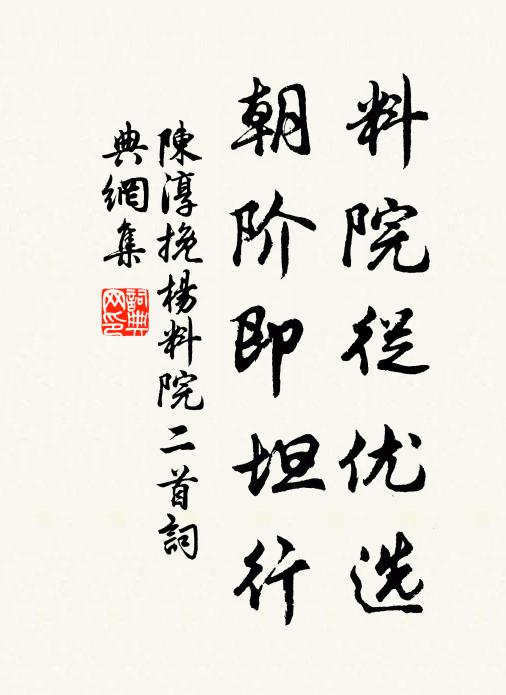 料院従优选
朝阶即坦行
陳淳挽楊料院二首詞
典網集
詞典网印